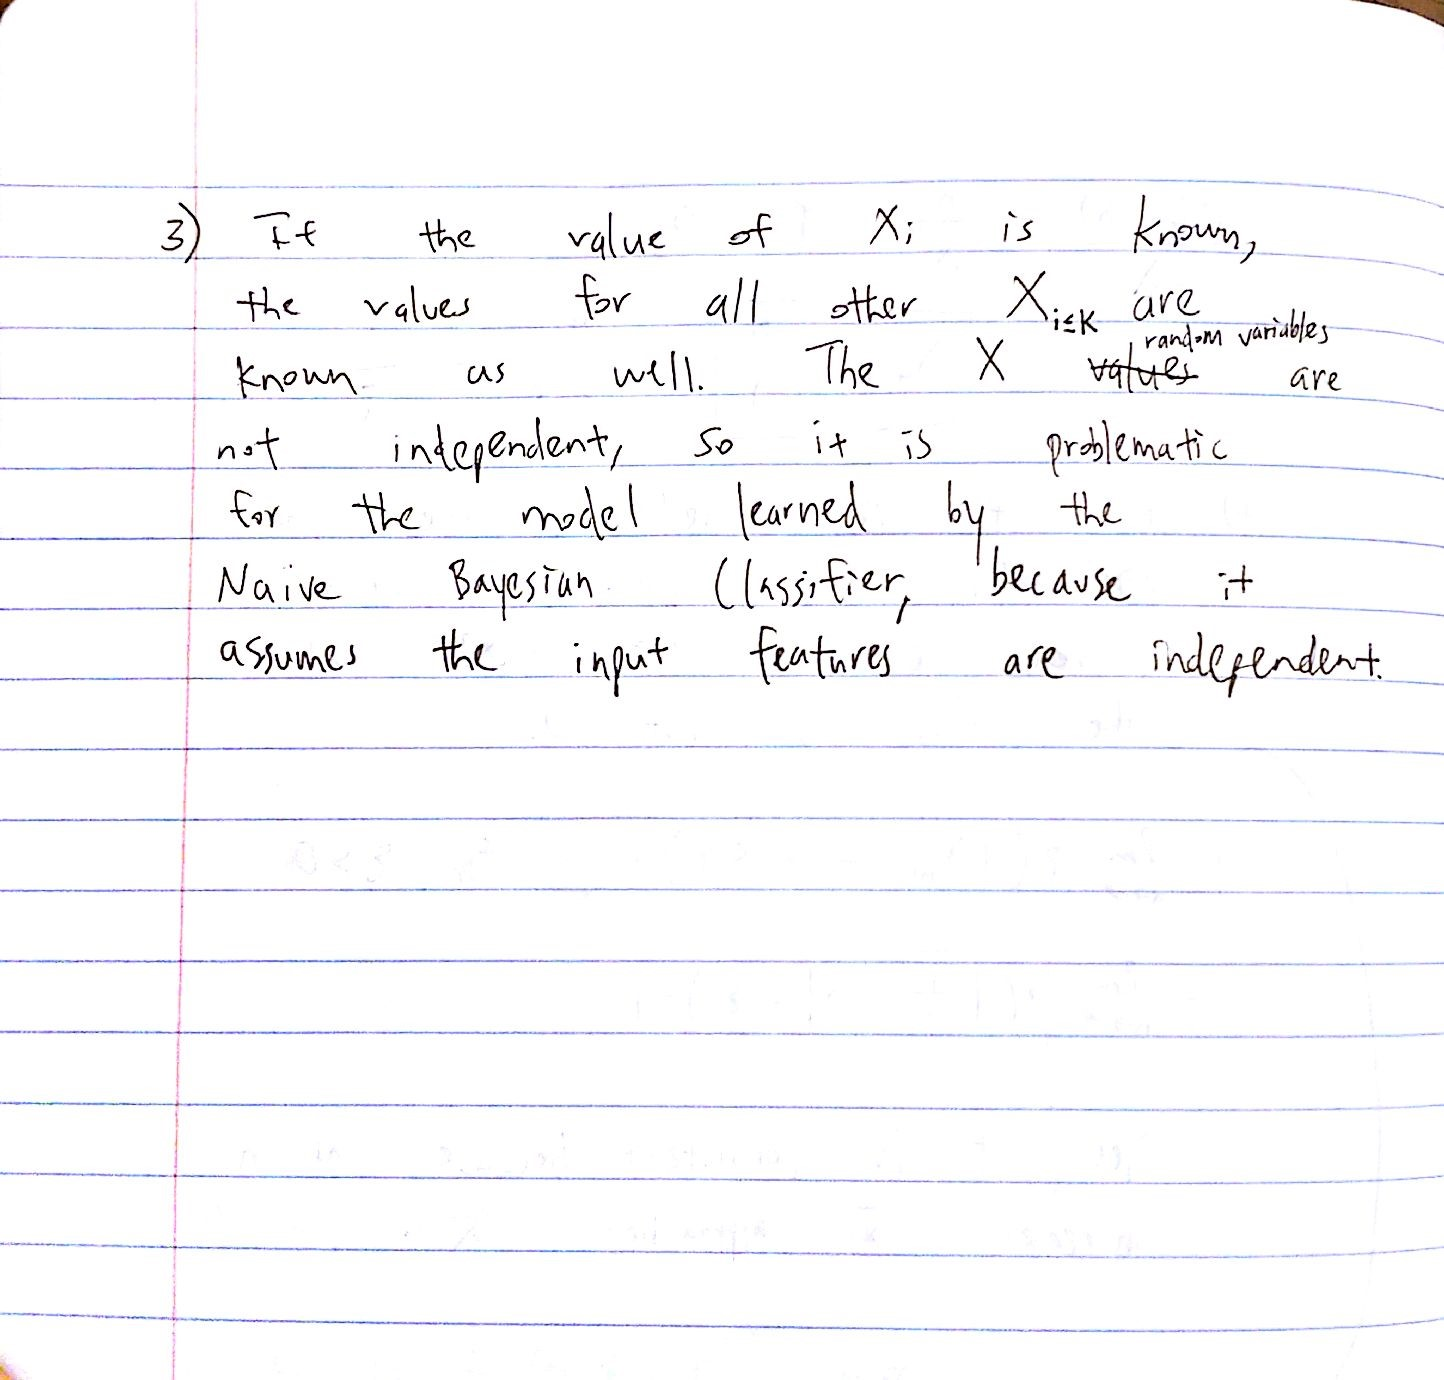 3) If the value of Xi is known,
the values for all other Xi≤K are
known as well. The X values random variables are
not independent, so it is problematic
for the model learned by the
Naive Bayesian Classifier, because it
assumes the input features are independent.